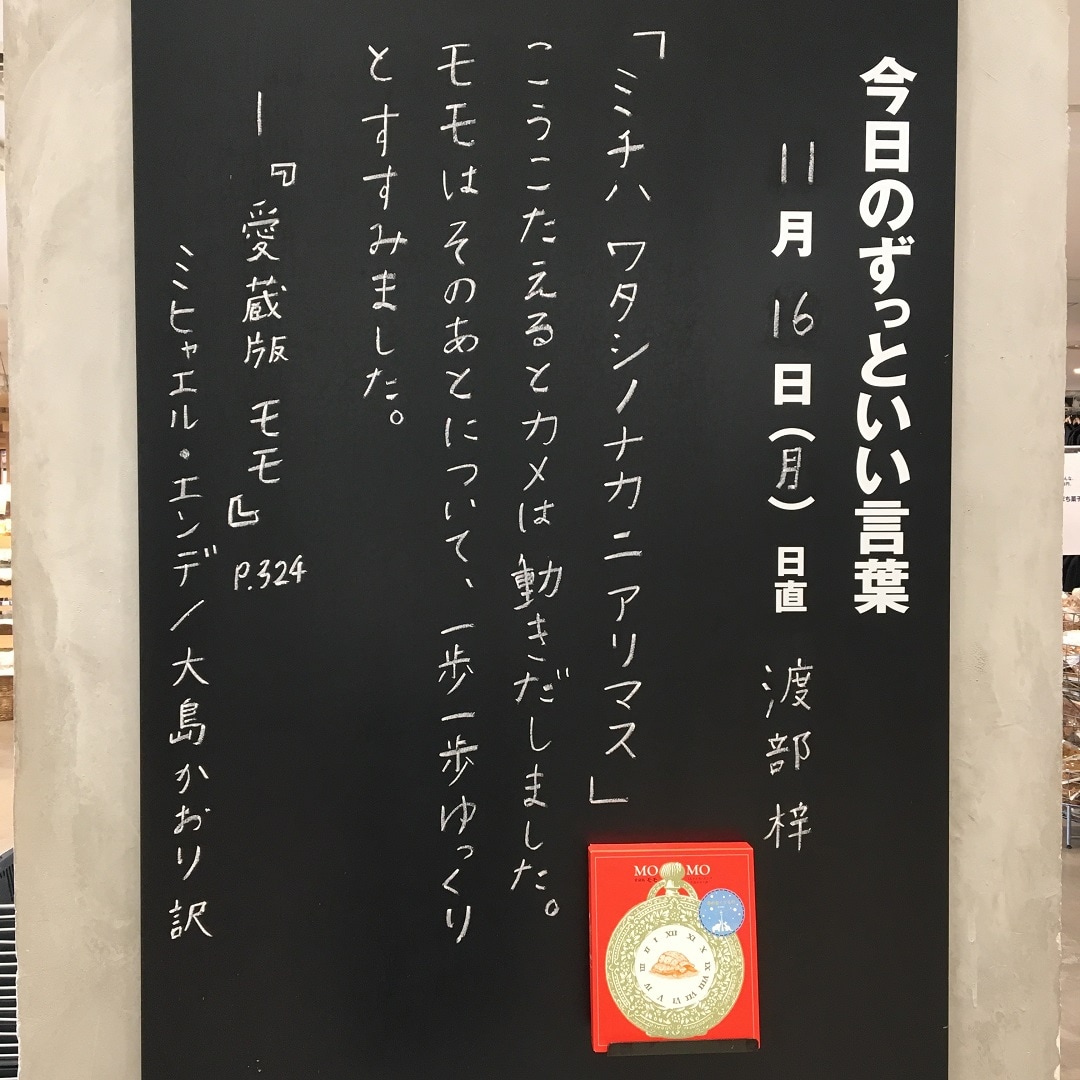 今日のずっといい言葉
11月16日(月) 日直 渡部 梓
「ミチハ ワタシノナカニアリマス」
こうこたえるとカメは動きだしました。
モモはそのあとについて、一歩一歩ゆっくり
とすすみました。
―『愛蔵版 モモ』P.324
ミヒャエル・エンデ/大島かおり 訳
MOMO
XII I II III IV V VI VII VIII IX X XI